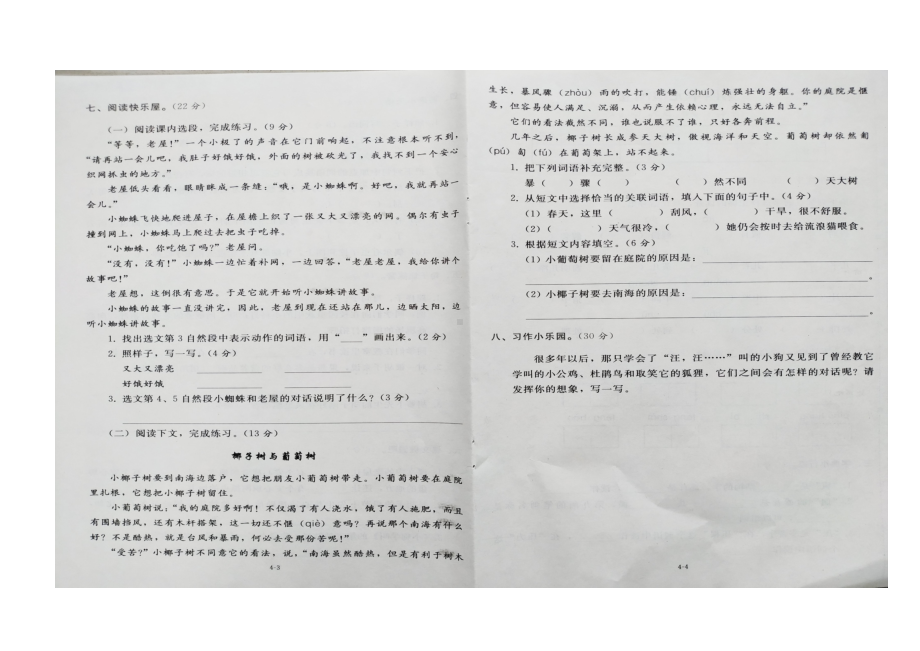 七、阅读快乐屋。(22 分)
(一) 阅读课内选段，完成练习。(9 分)
“等等，老屋!”一个小极了的声音在它门前响起，不注意根本听不到，
“请再站一会儿吧，我肚子好饿好饿，外面的树被砍光了，我找不到一个安心
织网抓虫的地方。”
老屋低头看看，眼睛眯成一条缝：“哦，是小蜘蛛啊。好吧，我就再站一
会儿。”
小蜘蛛飞快地爬进屋子，在屋檐上织了一张又大又漂亮的网。偶尔有虫子
撞到网上，小蜘蛛马上爬过去把虫子吃掉。
“小蜘蛛，你吃饱了吗?”老屋问。
“没有，没有!”小蜘蛛一边忙着补网，一边回答，“老屋老屋，我给你讲个
故事吧!”
老屋想，这倒很有意思。于是它就开始听小蜘蛛讲故事。
小蜘蛛的故事一直没讲完，因此，老屋到现在还站在那儿，边晒太阳，边
听小蜘蛛讲故事。
1. 找出选文第 3 自然段中表示动作的词语，用“____”画出来。(2 分)
2. 照样子，写一写。(4 分)
又大又漂亮 ________ ________
好饿好饿 ________ ________
3. 选文第 4、5 自然段小蜘蛛和老屋的对话说明了什么? (3 分)
(二) 阅读下文，完成练习。(13 分)
椰子树与葡萄树
小椰子树要到南海边落户，它想把朋友小葡萄树带走。小葡萄树要在庭院
里扎根，它想把小椰子树留住。
小葡萄树说：“我的庭院多好啊! 不仅渴了有人浇水，饿了有人施肥，而且
有围墙挡风，还有木杆搭架，这一切还不惬 (qiè) 意吗? 再说那个南海有什么
好? 不是酷热，就是台风和暴雨，何必去受那份苦呢!”
“受苦?”小椰子树不同意它的看法，说，“南海虽然酷热，但是有利于树木
4-3
生长，暴风骤 (zhòu) 雨的吹打，能锤 (chuí) 炼强壮的身躯。你的庭院是惬
意，但容易使人满足、沉溺，从而产生依赖心理，永远无法自立。”
它们的看法截然不同，谁也说服不了谁，只好各奔前程。
几年之后，椰子树长成参天大树，傲视海洋和天空。葡萄树却依然匍
(pú) 匐 (fú) 在葡萄架上，站不起来。
1. 把下列词语补充完整。(3 分)
暴 (　　) 骤 (　　) (　　) 然不同 (　　) 天大树
2. 从短文中选择恰当的关联词语，填入下面的句子中。(4 分)
(1) 春天，这里 (　　　　) 刮风，(　　　　) 干旱，很不舒服。
(2) (　　　　) 天气很冷，(　　　　) 她仍会按时去给流浪猫喂食。
3. 根据短文内容填空。(6 分)
(1) 小葡萄树要留在庭院的原因是：________
________。
(2) 小椰子树要去南海的原因是：________
________。
八、习作小乐园。(30 分)
很多年以后，那只学会了“汪，汪……”叫的小狗又见到了曾经教它
学叫的小公鸡、杜鹃鸟和取笑它的狐狸，它们之间会有怎样的对话呢? 请
发挥你的想象，写一写。
4-4